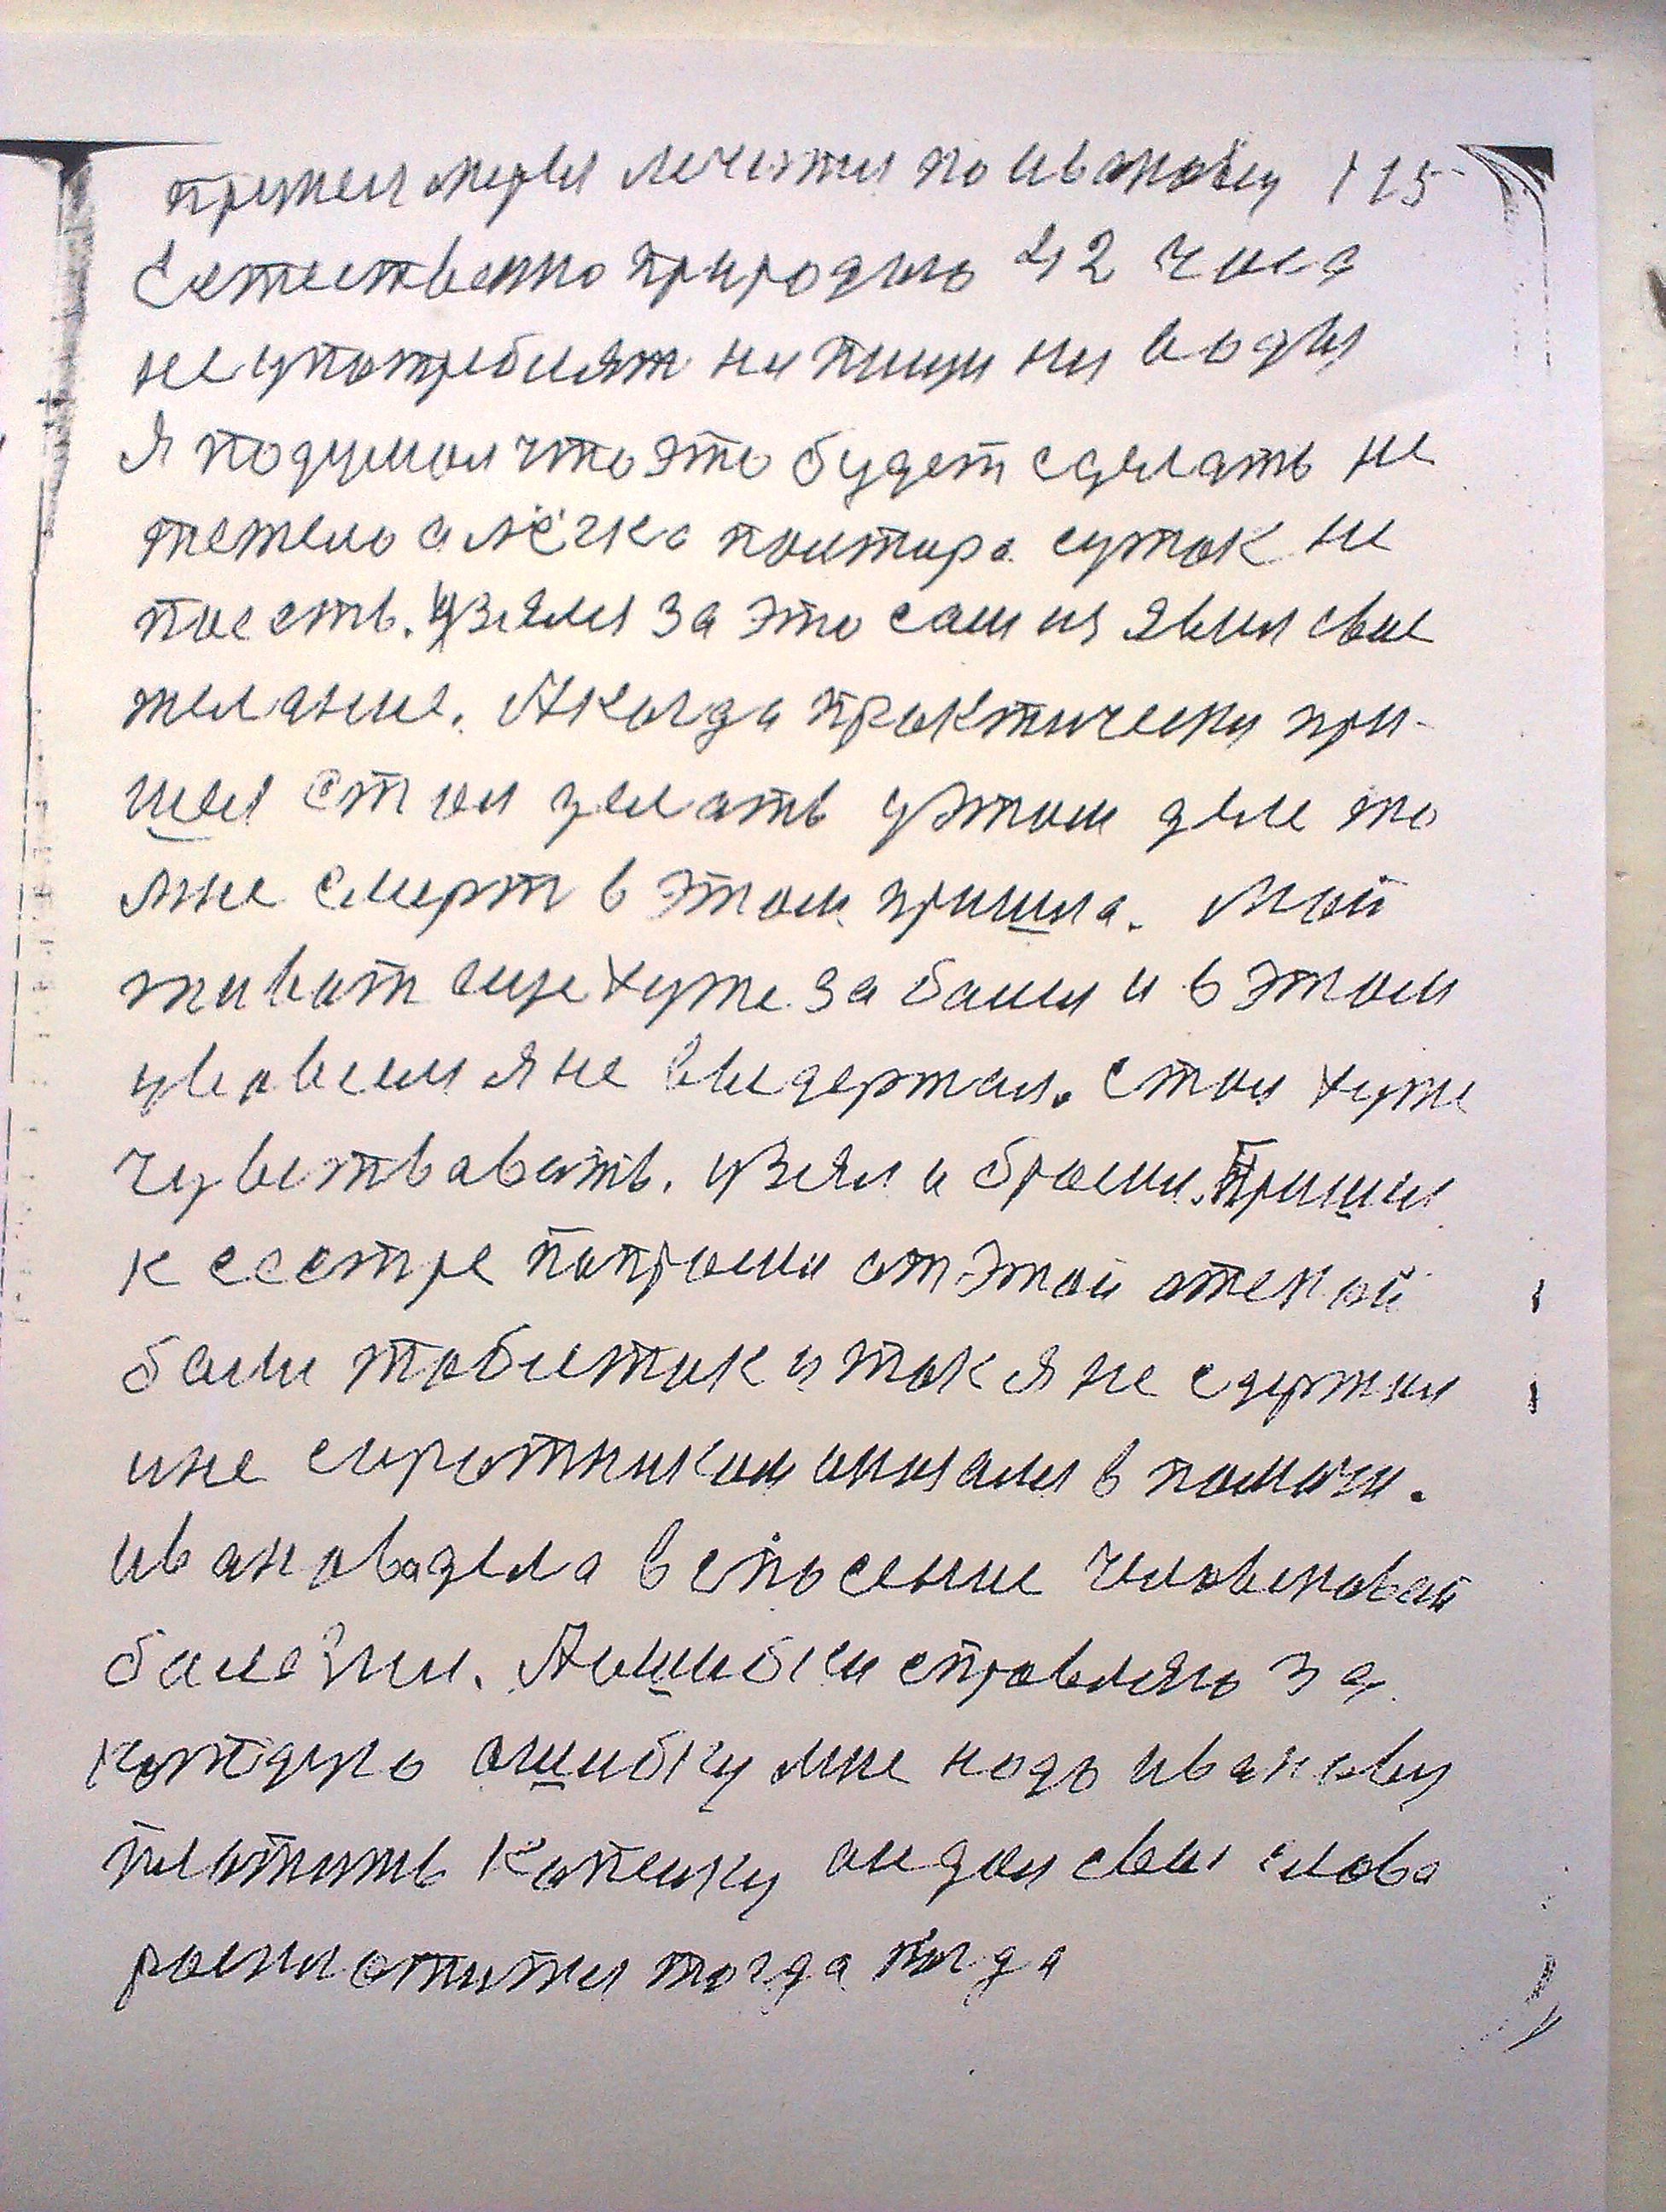 принел меры лечится по иванову 115
Естественно природно 42 часа
не употреблят ни пищи ни воды
Я подумал что это будет сделать не
тежело а лёгко полтара суток не
поесть. узялся за это сам изявил свое
желание. А когда практически при-
шел стал делать у этом деле то
мне смерт в этом пришла. Мой
живот еще хуже заболил и в этом
условиям я не выдержал. стал хуже
чувствавать. узял и бросил. Пришил
к сестре попросил от этой
боли таблеток и так я не сдержал
и не сиротником аказался в помочи.
иванова дела в спосение человековай
болезни. А ошибки справляю за
каждую ошибку мне надо иванову
платить копейку он дал свои слова
росплатится тогда тогда